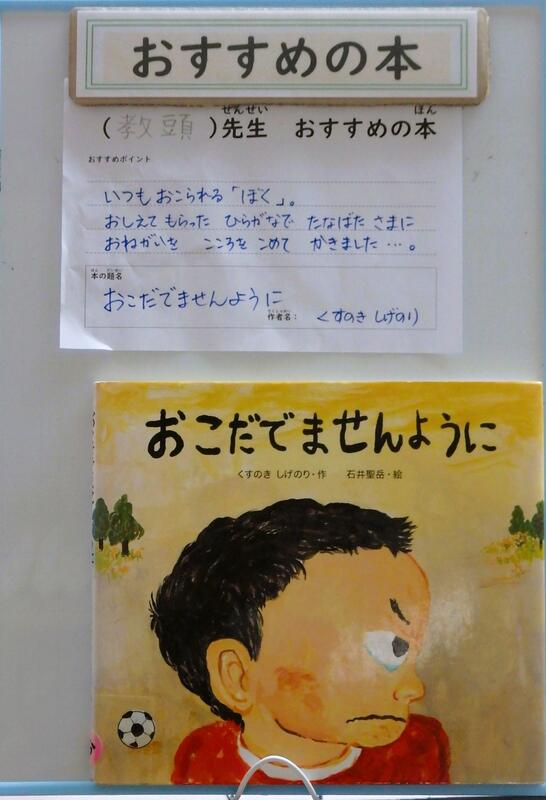 おすすめの本
(教頭)先生 おすすめの本
せんせい ほん
おすすめポイント
いつも おこられる「ぼく」。
おしえて もらった ひらがなで たなばた さまに
おねがいを こころを こめて かきました…。
ほん だいめい
本の題名
おこだでませんように
さくしゃめい
作者名: くすのき しげのり
おこだでませんように
くすのき しげのり・作 石井聖岳・絵